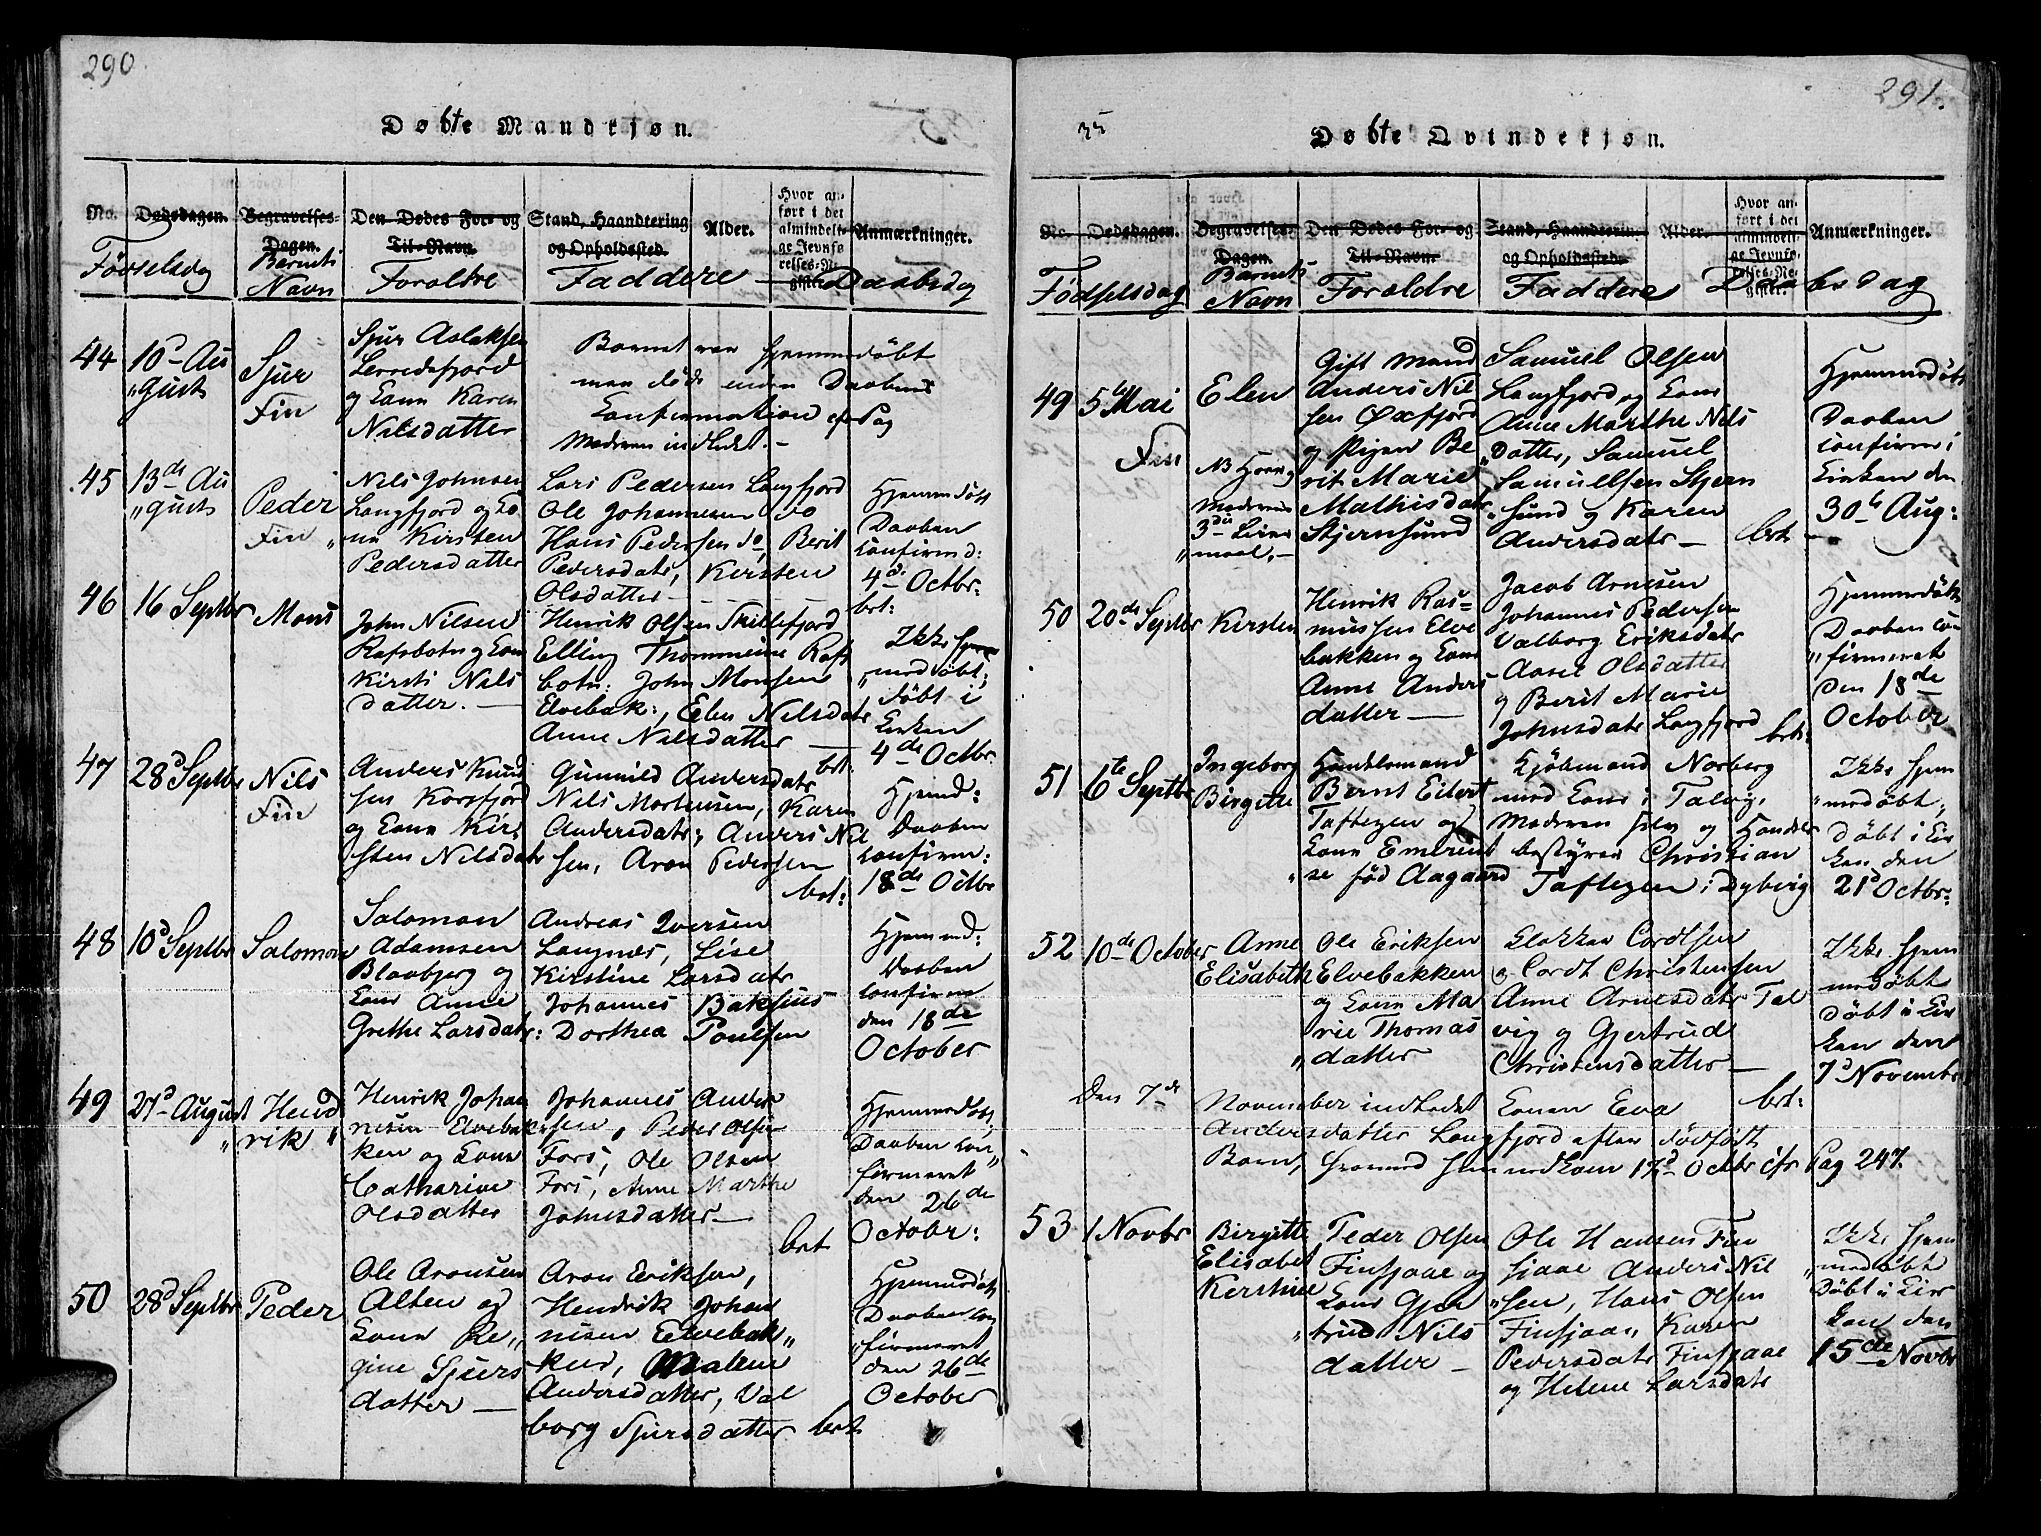 290
Døbte Mandkjøn.
No. Dødsdagen. Begravelses-Dagen. Den Dødes For- og Til-Navn. Stand, Haandtering og Opholdssted. Alder. Hvor anført i det almindelige Jevnførelses-Register. Anmærkninger.
Fødselsdag Barnets Navn Foraldre Faddere Daabsdag
44 10d August
Sjur
Fin
Sjur Aslaksen
Lerredsfjord
og Kone Karen
Nilsdatter
Barnet var hjemmedøbt
men døde uden Daabens
Confirmation cfr Pag
Moderen indledt. -
45 13de Au
"gust
Peder
Fin
Nils Johnsen
Langfjord og Ko
ne Kirsten
Pedersdatter
Lars Pedersen Langfjord
Ole Johannesen do
Hans Pedersen do, Berit
Pedersdatr, Kirsten
Olsdatter
Hjemmedøbt
Daaben
confirmd:
4d Octbr.
brt:
46 16 Septbr Mons
John Nilsen
Rafsbotn og Kone
Kirsti Nils
datter. —
Henrik Olsen Skillefjord
Elling Thommesen Rafs
botn: John Monsen
Elvebak:, Elen Nilsdatr
Anne Nilsdatter
brt:
Ikke hjem
"medøbt;
døbt i
Kirken
4de Octbr.
47 28d Septbr Nils
Fin
Anders Knud
sen Korsfjord
og Kone Kir
sten Nilsdatr
Gunnild Andersdatr
Nils Mortensen, Karen
Andersdatr, Anders Nil
sen, Aron Pedersen
brt:
Hjemd:
Daaben
confirm:
18de Octbr
48 10d Septbr Salomon
Salomon
Adamsen
Blaabjerg og
Kone Anne
Grethe Larsdatr:
Andreas Iversen
Langnæs, Lise
Kirstine Larsdatr
Johannes Baksius
Dorthea Poulsen
Hjemmd:
Daaben
confirm
den 18de
October
49 27d August Hend
"rik "
Henrik Johan
nesen Elvebak
ken og Kone
Catharine
Olsdatter
Johannes Ander
sen, Peder Olsen
Fors, Ole Olsen
Fors, Anne Marthe
Johnsdatter —
brt
Hjemmedøbt,
Daaben con
firmeret
den 26de
Octobr:
50 28d Septbr Peder
Ole Aronsen
Alten og
Kone Re"
gine Sjurs
datter —
Aron Eriksen,
Hendrik Johan
nesen Elvebak"
ken, Malene
Andersdatter, Val
borg Sjursdatter brt
Hjemmedøbt
Daaben con
"firmeret
den 26de
October
291.
Døbte Qvindekjøn.
No. Dødsdagen. Begravelses-Dagen. Den Dødes For- og Til-Navn. Stand, Haandtering og Opholdssted. Alder. Hvor anført i det almindelige Jevnførelses-Register. Anmærkninger.
Fødselsdag Barnets Navn Foraldre Faddere Daabsdag
49 5te Mai Elen
Fin
NB
Moderens
3die Leier
"maal. —
Gift Mand
Anders Nil
sen Øxfjord
og Pigen Be
rit Marie
Mathisdatr
Stjernsund
Samuel Olsen
Langfjord og Kone
Anne Marthe Nils
"datter, Samuel
Samuelsen Stjern
"sund og Karen
Andersdatr —
brt
Hjemmedøbt
Daaben
confirm i
Kirken den
30te Aug:
50 20de Septbr Kirsten
Henrik Ras=
mussen Elve
bakken og Kone
Anne Anders
datter —
Jacob Arnesen
Johannes Pedersen
Valborg Eriksdatr
Aaset Olsdatter
og Berit Marie
Johnsdatr Langfjord
brt:
Hjemmedøbt
Daaben con
"firmeret
den 18de
October
51 6te Septbr Ingeborg
Birgitte
Handelsmand
Bernt Eilert
Taftezen og
Kone Emeren
"se fød Aagaard
Kjøbmand Norberg
med Kone i Talvig,
Moderen selv og Handels
bestyrer Christian
Taftezen i Dybvig
Ikke hjem
"medøbt,
døbt i Kir
ken den
21d Octbr.
52 10de October Anne
Elisabeth
Ole Eriksen
Elvebakken
og Kone Ma
rie Thomas
"datter
Klokker Cordtsen
og Cordt Christensen
Anne Arnesdatr Tal
vig og Gjertrud
Christensdatter —
brt:
Ikke hjem
medøbt
døbt i Kir
ken den
7d Novembr
Den 7de November indledet Konen Eva
Andersdatter Langfjord efter dødfødt
Barn, hjemmedkom 17d Octbr cfr Pag 247.
53 1 Novbr Birgitte
Elisabet
Kerstine
Peder Olsen
Finsjaae og
Kone Gjer
"trud Nils
datter —
Ole Hansen Fin
sjaae Anders Nil
"sen, Hans Olsen
Finsjaa, Karen
Pedersdatr Finsjaae
og Helene Larsdatr
Ikke hjem
"medøbt
døbt i Kir
ken den
15de Novbr